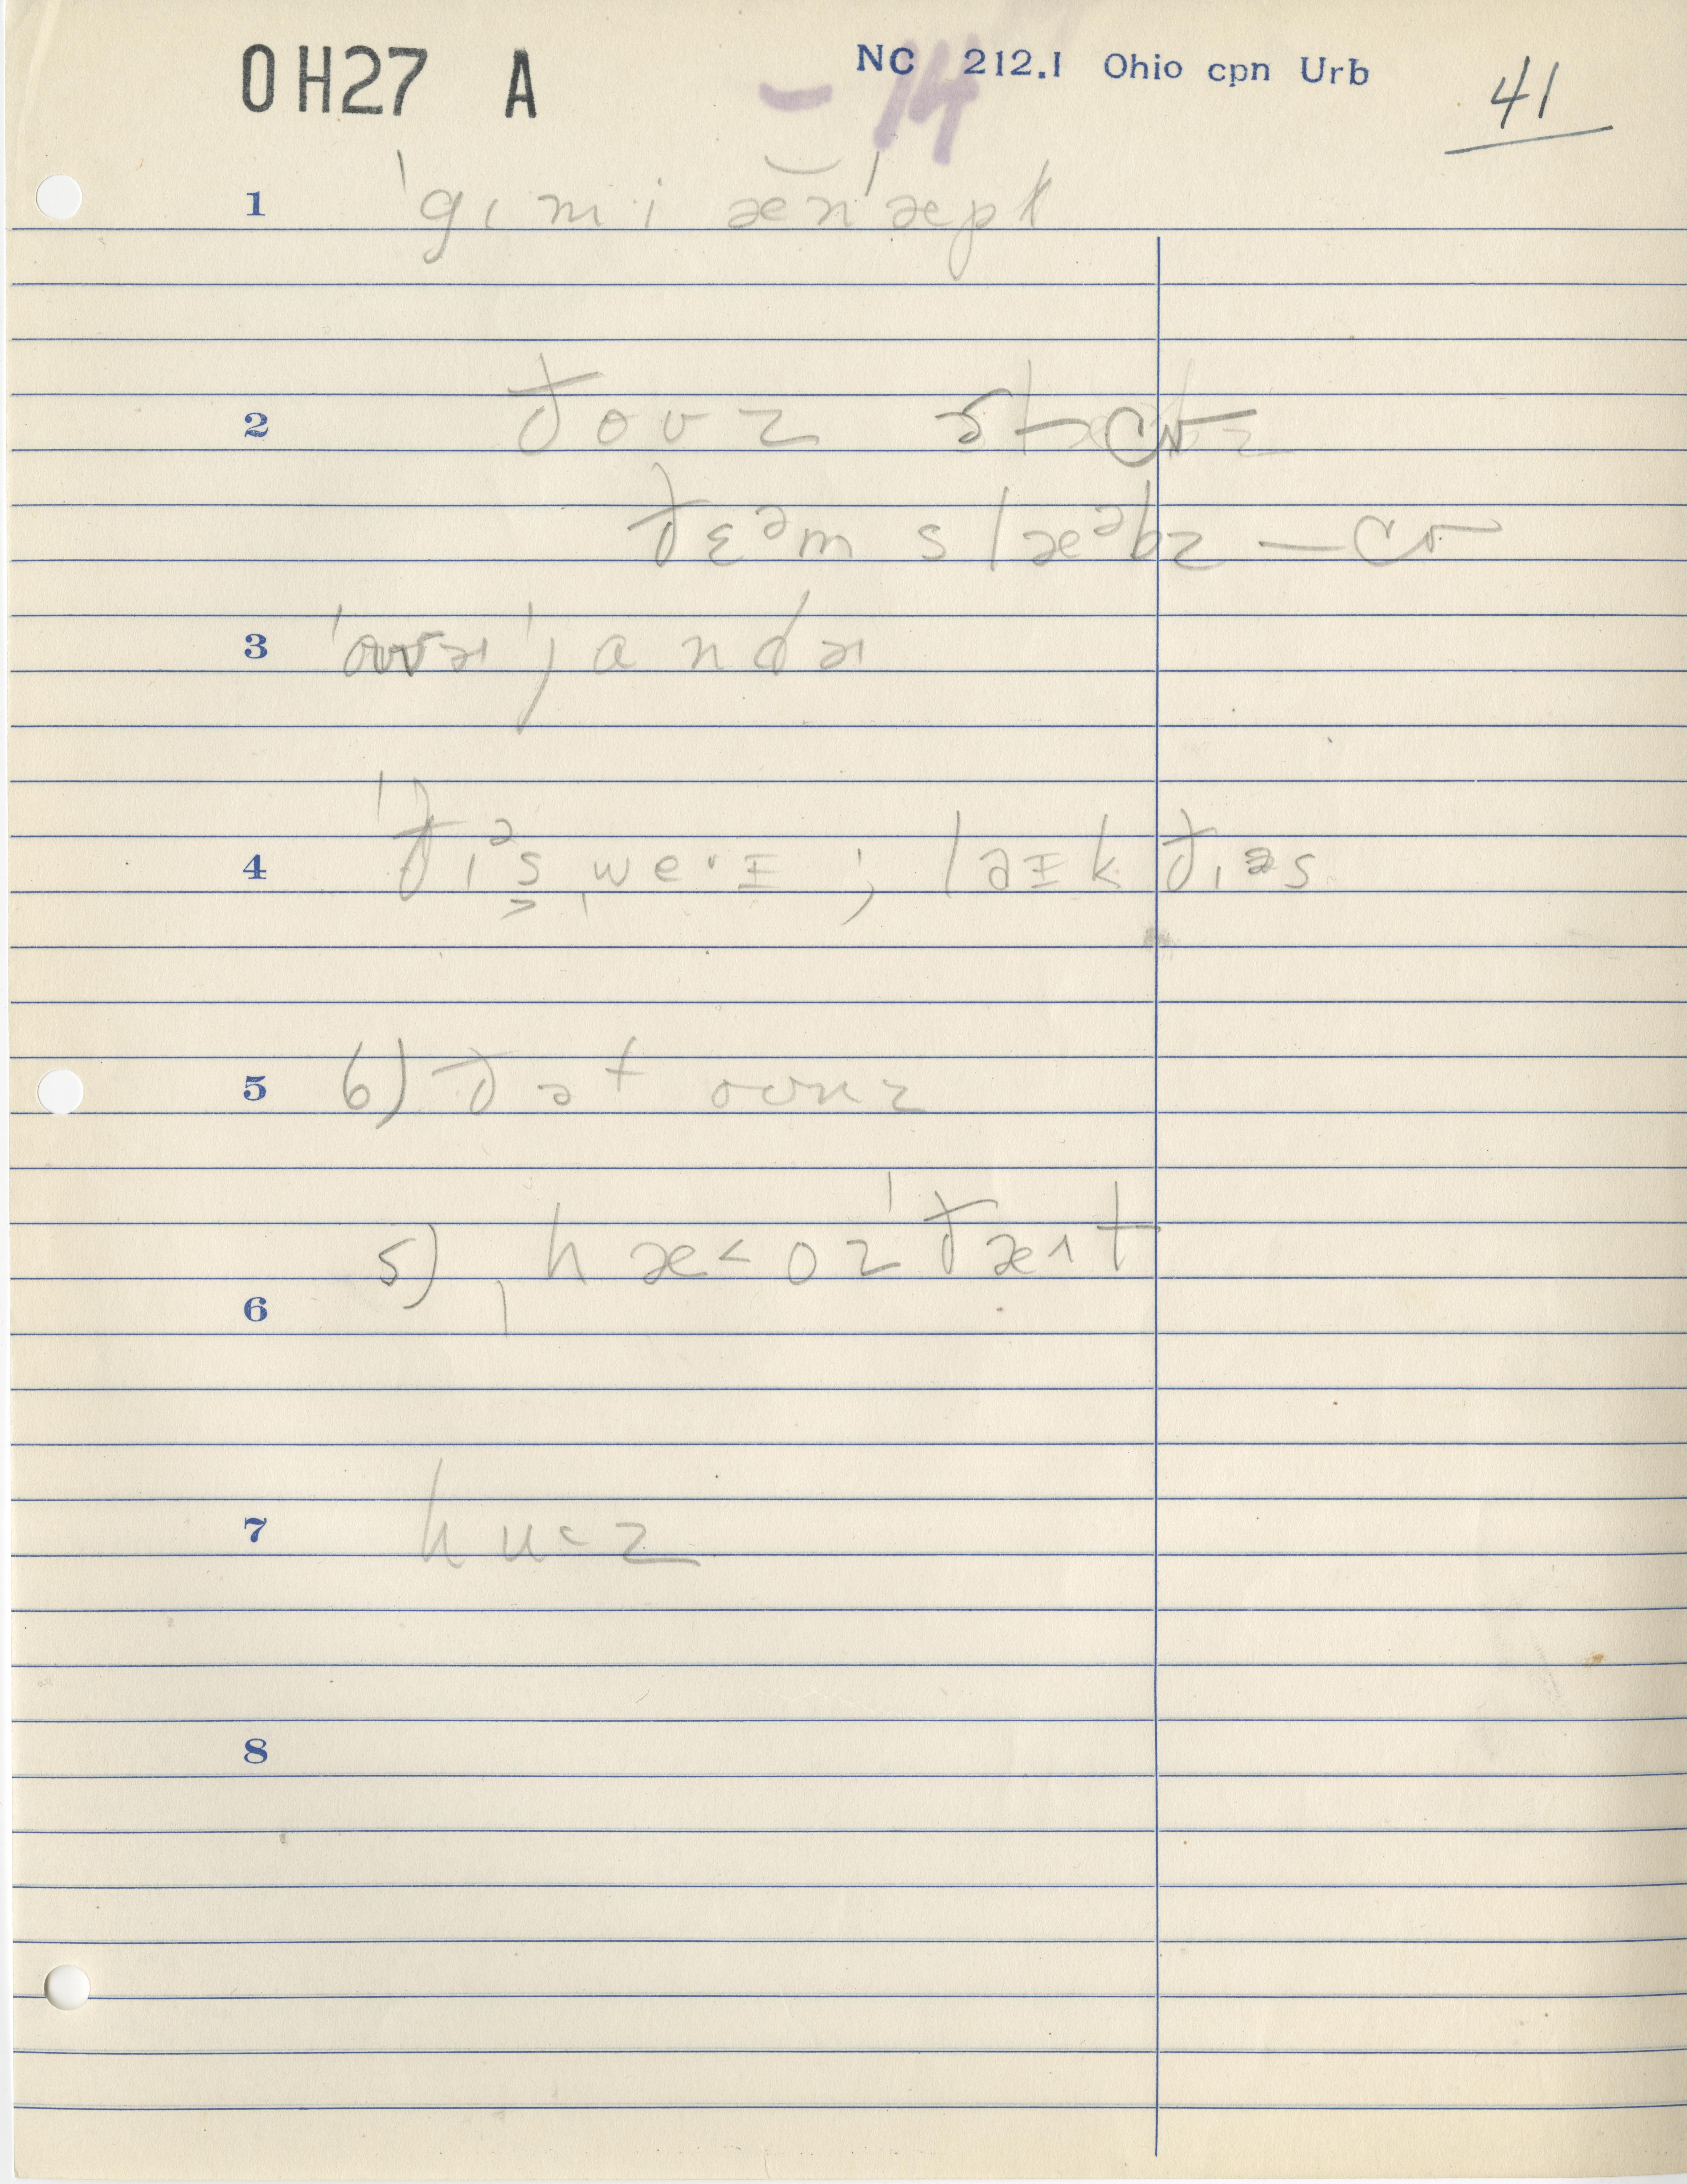 OH27 A -14 NC 212.1 Ohio cpn Urb 41
1 ˈgɪmi æn ˈæpt
2 ðoʊz
ðɛᵊm slæᵊbz — cr
3 ˈoʊvɚ ˈjandɚ
4 ˈðɪᵊs ˌweˑɪ ; laɪk ðɪəs
5 6) ðət oʊnz
5) ˌhæ˂oz ˈðæ˄t
6
7 hu˂z
8